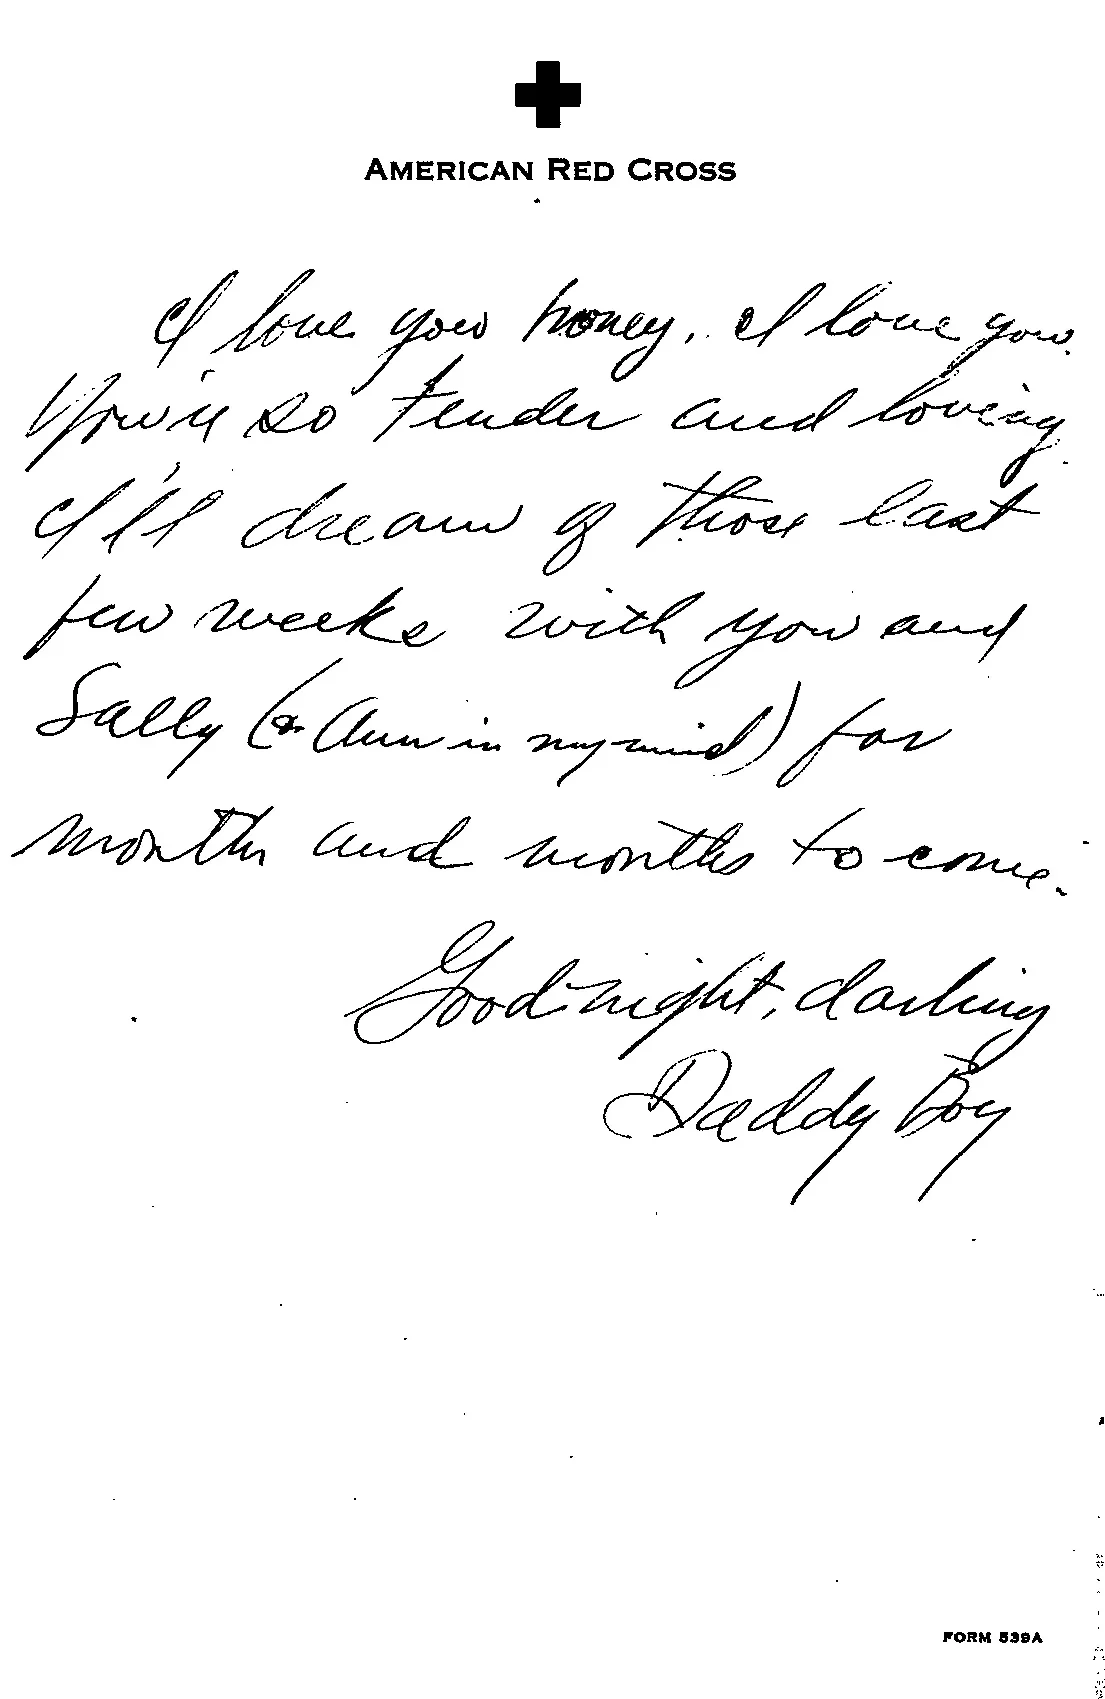 AMERICAN RED CROSS
I love you honey, I love you.
You're so tender and loving
I'll dream of those last
few weeks with you and
Sally (& Ann in my mind) for
months and months to come.
Good-night, darling
Daddy Boy
FORM 539A